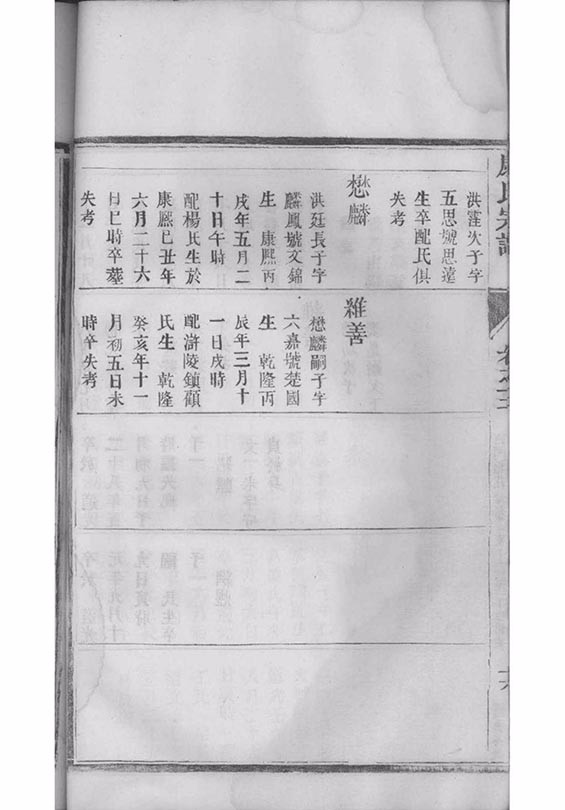 氏宗譜
卷之三
洪窪次子字
五思號思遠
生卒配氏俱
失考
懋麟
洪廷長子字
麟鳳號文錦
生 康熙丙
戌年五月二
十日午時
配楊氏生於
康熙己丑年
六月二十六
日巳時卒塟
失考
維善
懋麟嗣子字
六嘉號楚國
生 乾隆丙
辰年三月十
一日戌時
配滸陵鎮顧
氏生 乾隆
癸亥年十一
月初五日未
時卒失考